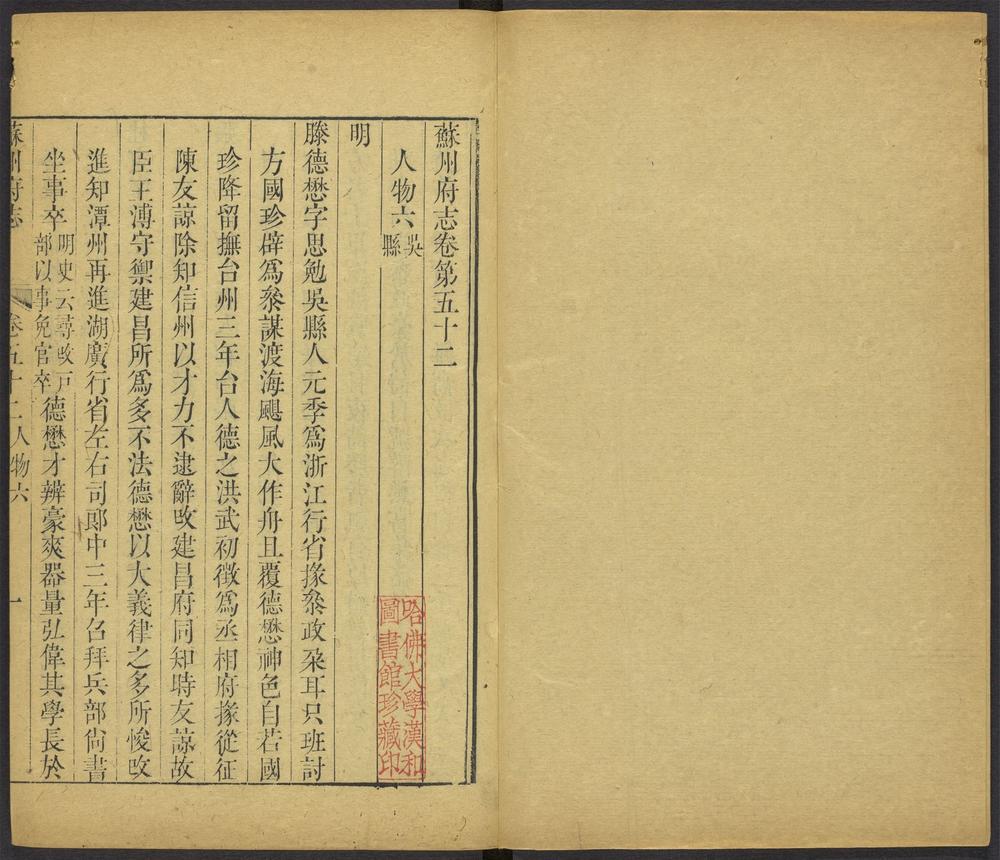 蘇州府志卷第五十二
人物六 吳縣
明
滕德懋字思勉吳縣人元季爲浙江行省掾叅政朶耳只班討
方國珍辟爲叅謀渡海颶風大作舟且覆德懋神色自若國
珍降留撫台州三年台人德之洪武初徵爲丞相府掾從征
陳友諒除知信州以才力不逮辭改建昌府同知時友諒故
臣王溥守禦建昌所爲多不法德懋以大義律之多所悛改
進知潭州再進湖廣行省左右司郞中三年召拜兵部尙書
坐事卒 明史云尋改戸部以事免官卒 德懋才辨豪爽器量弘偉其學長於
蘇州府志 卷五十二人物六 一
哈佛大學漢和
圖書館珍藏印